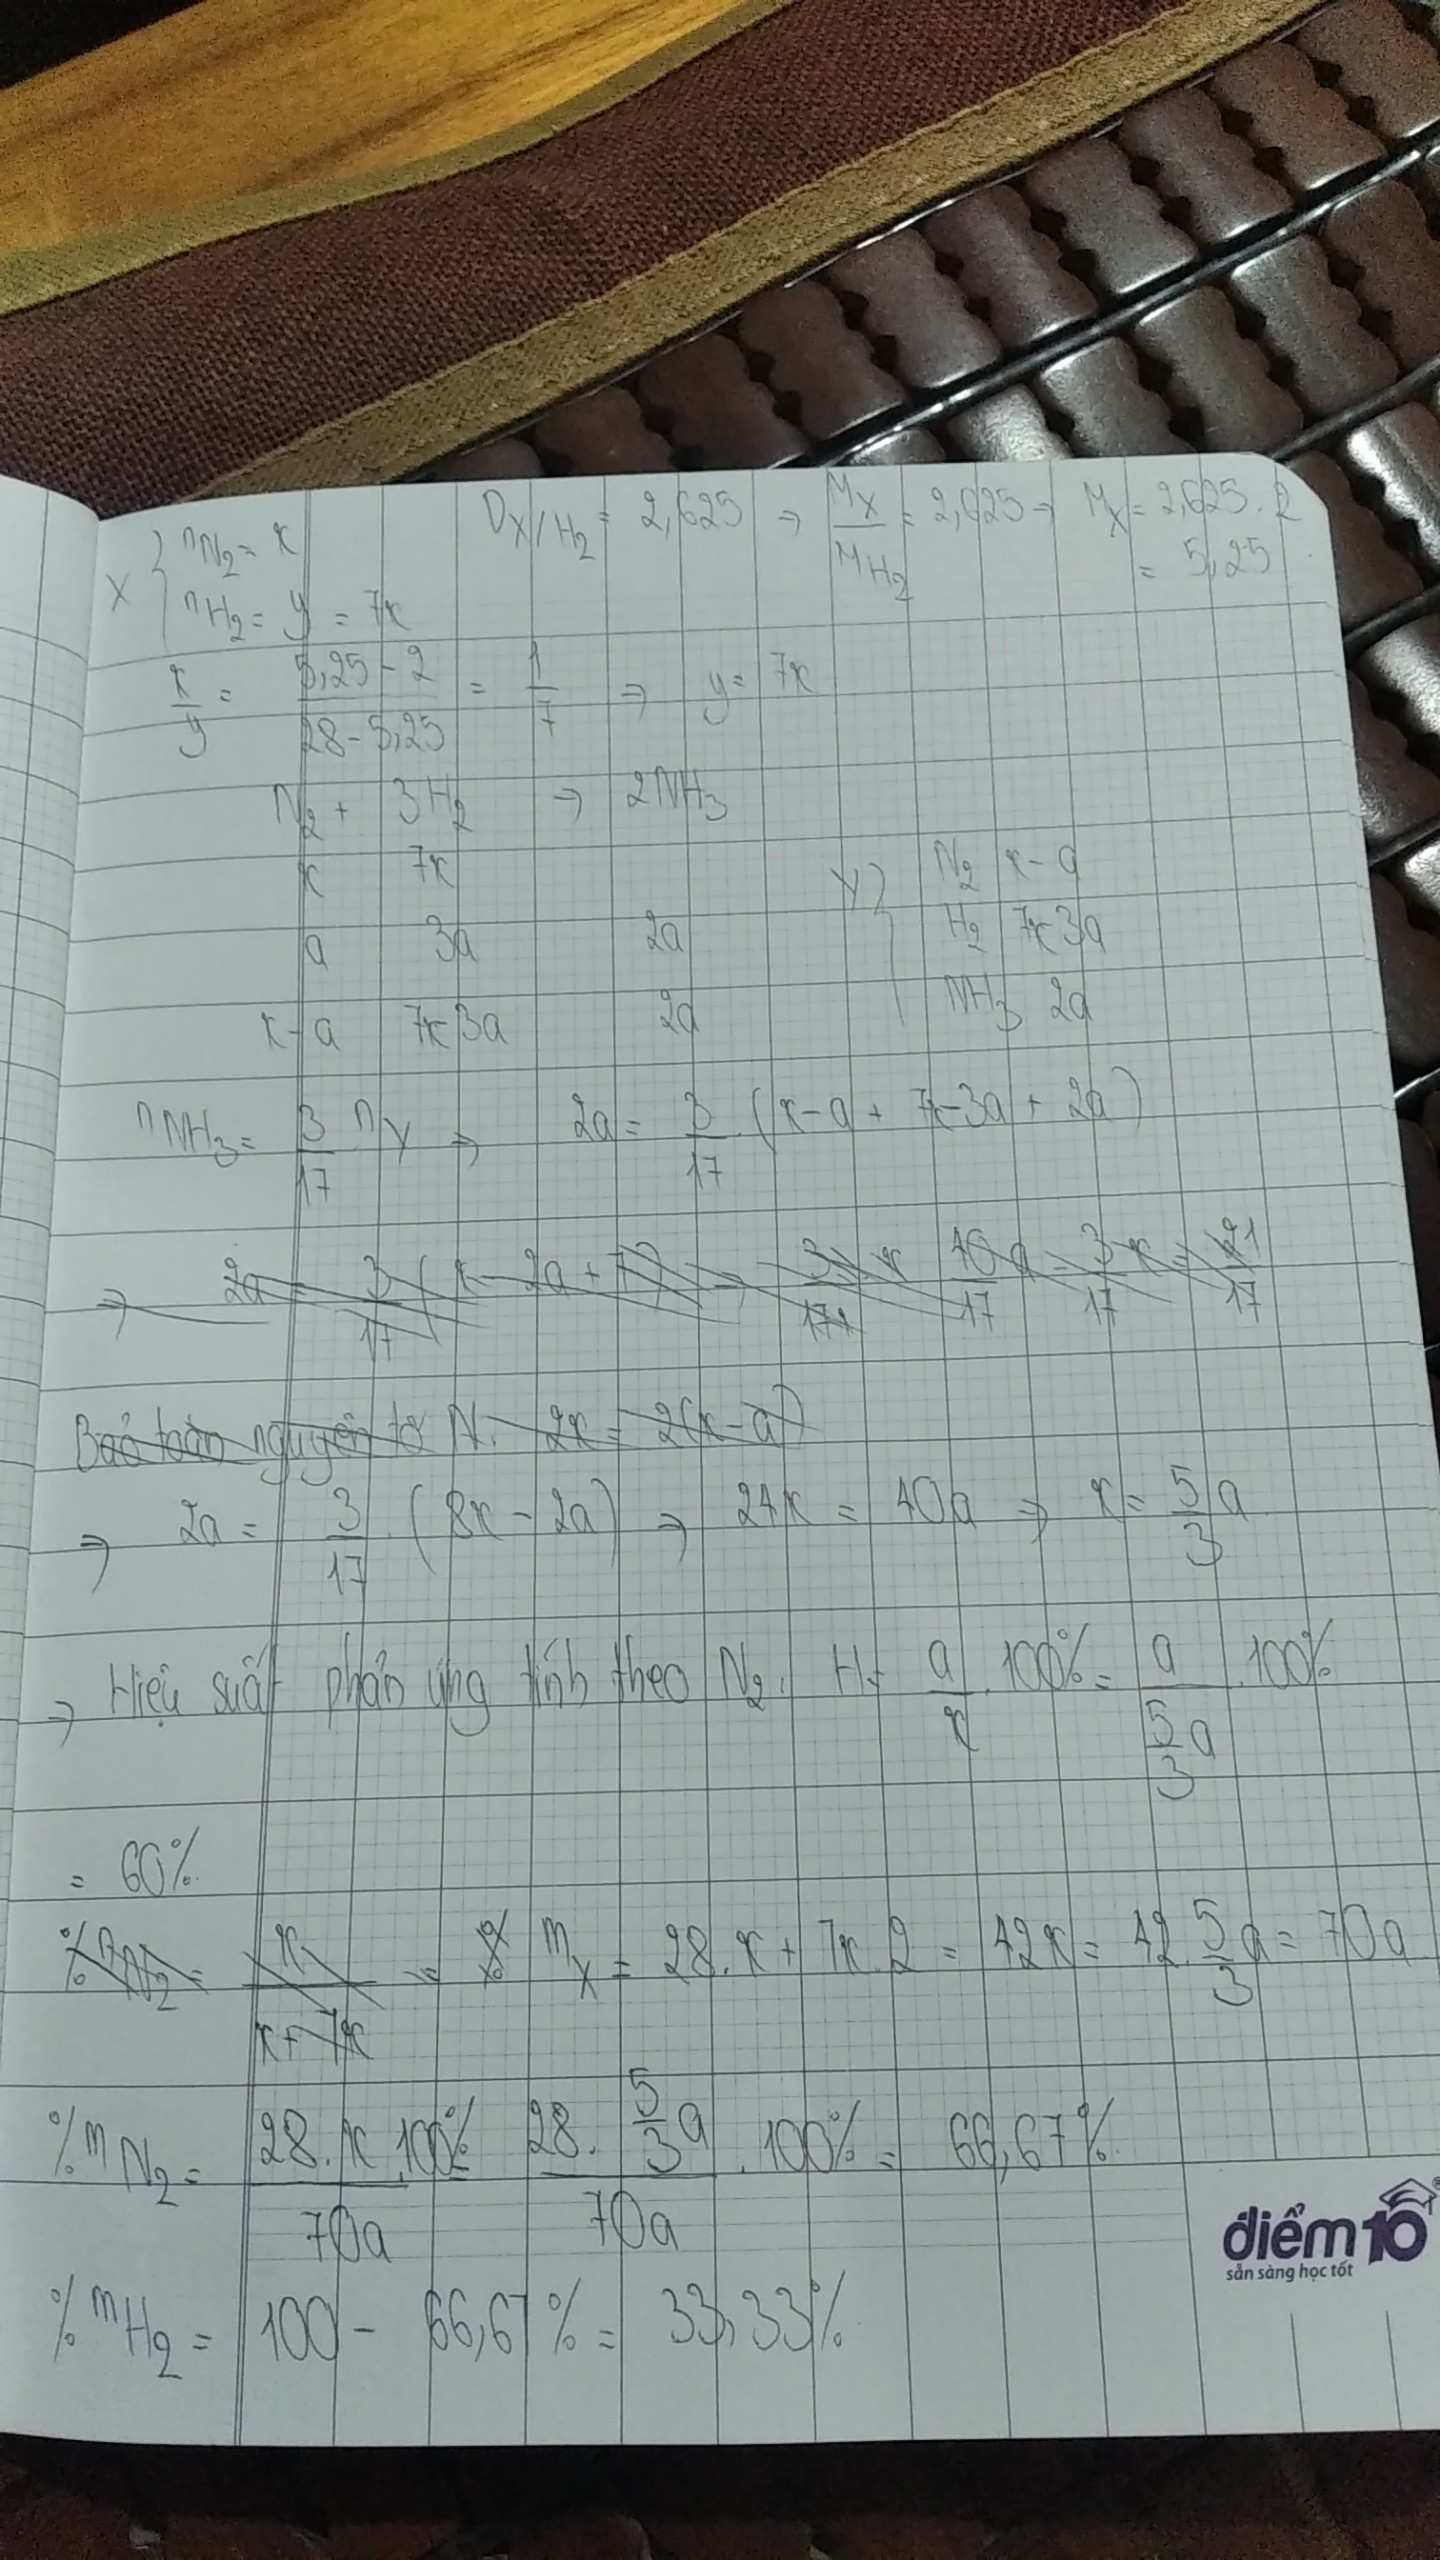 X { nN2 = x   DX/H2 = 2,625 ⇒ MX/MH2 = 2,625 ⇒ MX = 2,625 . 2
nH2 = y = 7x   = 5,25
x/y = (5,25 - 2)/(28 - 5,25) = 1/7 ⇒ y = 7x
N2 + 3H2 → 2NH3
x   7x   Y { N2 x - a
a   3a   2a   H2 7x 3a
x - a   7x 3a   2a   NH3 2a
nNH3 = 3/17 nY ⇒ 2a = 3/17 . (x - a + 7x - 3a + 2a)
Bảo toàn nguyên tố N: 2x = 2(x - a)
⇒ 2a = 3/17 . (8x - 2a) ⇒ 24x = 40a ⇒ x = 5/3 a
⇒ Hiệu suất phản ứng tính theo N2: H = a/x . 100% = a/(5/3 a) . 100%
= 60%.
%nN2 = x/(x + 7x) = mX = 28 . x + 7x . 2 = 42x = 42 . 5/3 a = 70a
%mN2 = (28 . x . 100%)/70a = (28 . 5/3 a)/70a . 100% = 66,67%.
%mH2 = 100 - 66,67% = 33,33%.
điểm10
sẵn sàng học tốt